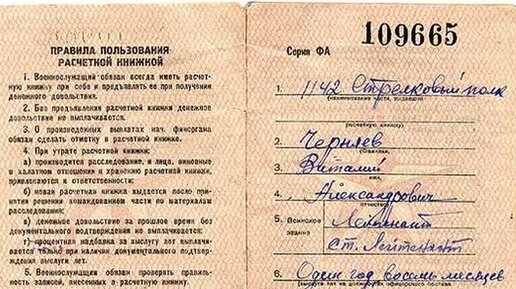 ПРАВИЛА ПОЛЬЗОВАНИЯ
РАСЧЕТНОЙ КНИЖКОЙ
1. Военнослужащий обязан всегда иметь расчет-
ную книжку при себе и предъявлять ее при получении
денежного довольствия.
2. Без предъявления расчетной книжки денежное
довольствие не выплачивается.
3. О произведенных выплатах нач. финоргана
обязан сделать отметку в расчетной книжке.
4. При утрате расчетной книжки:
а) производится расследование, и лица, виновные
в халатном отношении к хранению расчетной книжки,
привлекаются к ответственности:
б) новая расчетная книжка выдается после при-
нятия решения командованием части по материалам
расследования;
в) денежное довольствие за прошлое время без
документального подтверждения не выплачивается:
г) процентная надбавка за выслугу лет выплачи-
вается только при наличии документального подтверж-
дения выслуги лет.
5. Военнослужащий обязан проверять правиль-
ность записей, внесенных в расчетную книжку.
Серия ФА 109665
1. 1142 Стрелковый полк
(наименование части, выдавшей
расчетную книжку)
2. Черняев
(фамилия,
3. Виталий
имя
4. Александрович
5. Воинское звание Лейтенант
ст. Лейтенант
6. Один год восемь месяцев
(выслуга лет на должностях офицерского состава)